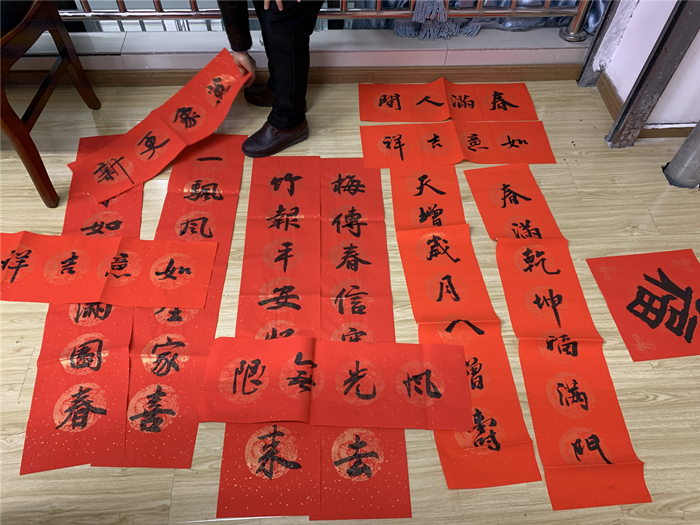 春滿人間
如意吉祥
春滿乾坤福滿門
天增歲月人增壽
梅傳春信 去
竹報平安 来
风光无限
一飘风 家喜
如 滿園春
如意吉祥
更新
福